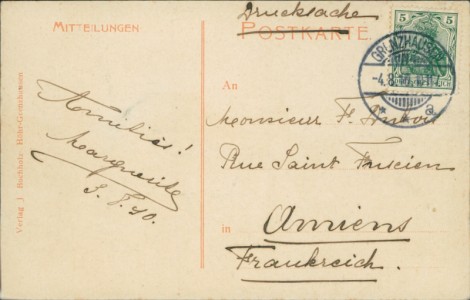 Drucksache
MITTEILUNGEN
POSTKARTE
5 5
GRENZHAUSEN
-4.8.10.
* * a
An
Monsieur
Rue Saint Fuscien
in
Amiens
Frankreich.
Marguerite
3.8.10.
Verlag J. Buchholz, Höhr-Grenzhausen